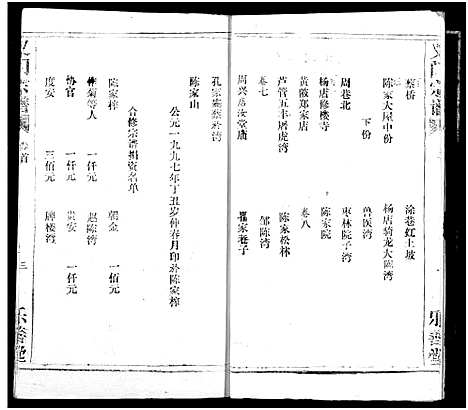 义门宗谱
蔡桥
涂巷红土坡
陈家大屋中份
杨店骑龙大陈湾
下份
兽医湾
周巷北
枣林院子湾
杨店修楼寺
陈家院
黄陂郑家店
卷八
芦管五丰屠虎湾
陈家松林
卷七
邹陈湾
周兴
翟家巷子
孔家
湾
陈家山
公元一九九七年丁丑岁仲春月印于陈家榨
合修宗谱捐资名单
陈家榨
朝金
一佰元
仲菊等人
一仟元
赵陈湾
协官
一仟元
贵安
一仟元
度安
三佰元
牌楼湾
义门宗谱
卷首
三
乐善堂
乐善堂